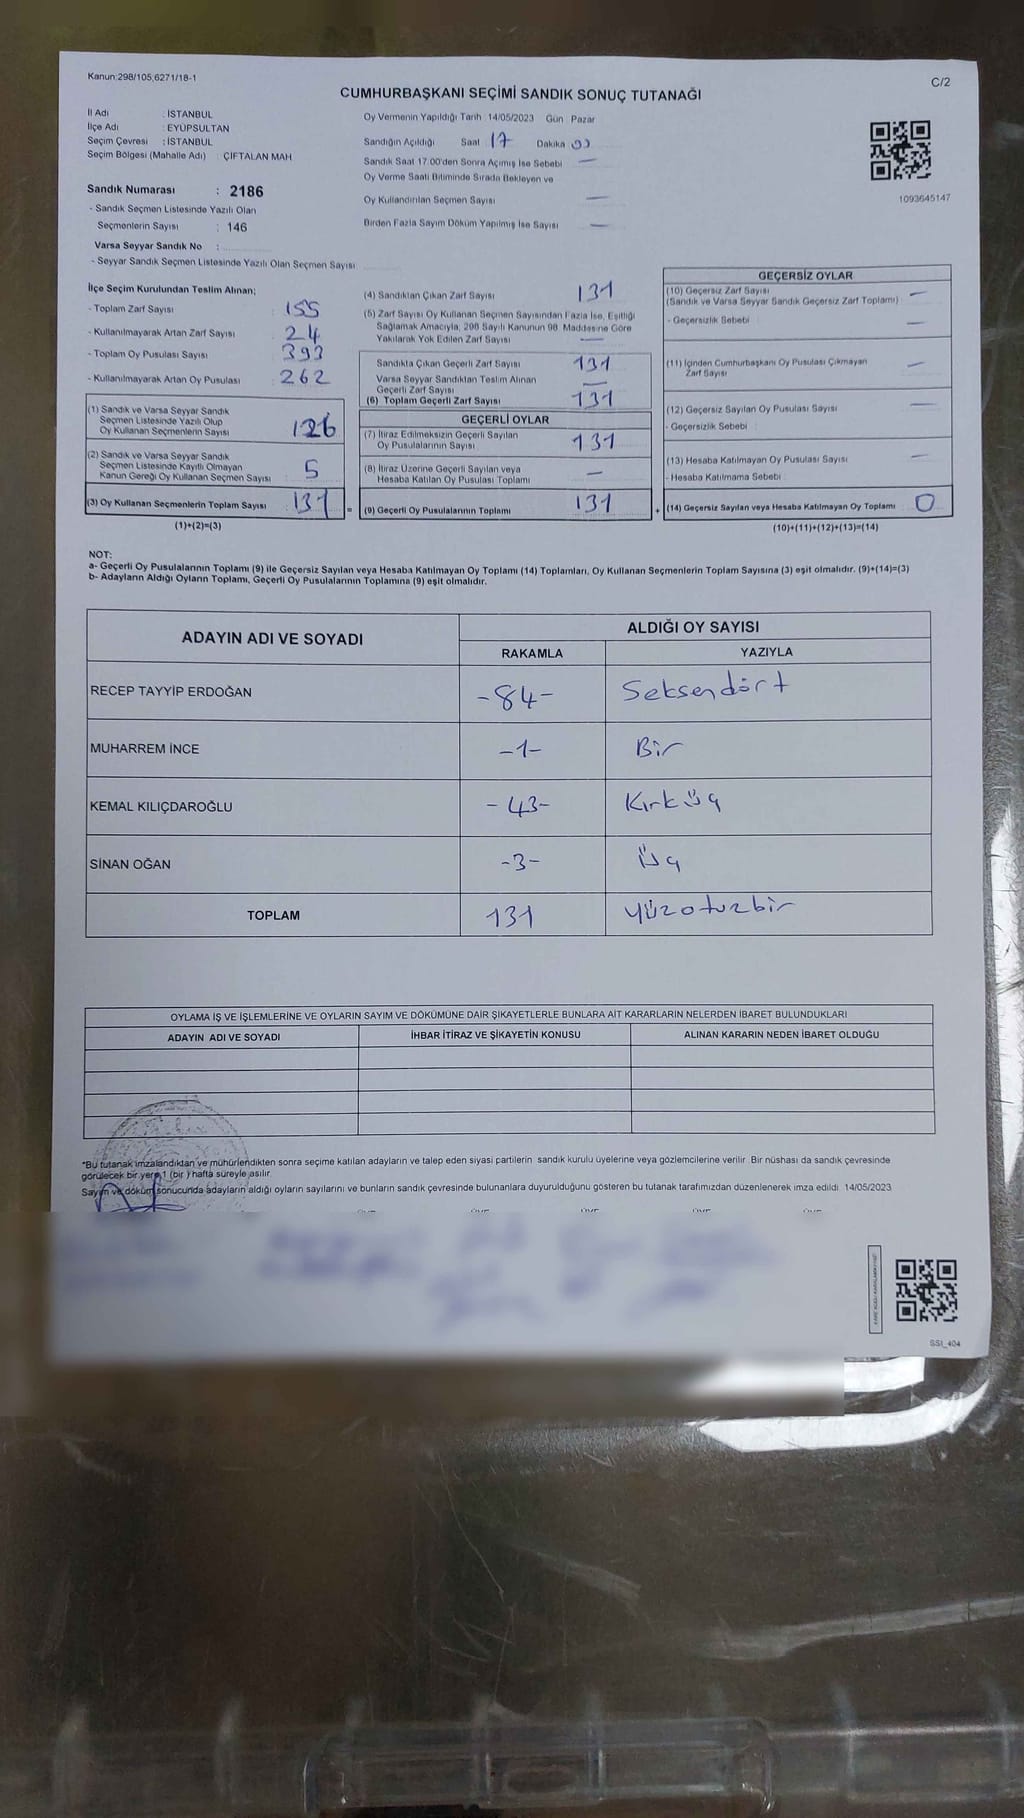 Kanun:298/105,6271/18-1
C/2
CUMHURBAŞKANI SEÇİMİ SANDIK SONUÇ TUTANAĞI
İl Adı : İSTANBUL
İlçe Adı : EYÜPSULTAN
Seçim Çevresi : İSTANBUL
Seçim Bölgesi (Mahalle Adı) : ÇİFTALAN MAH
Sandık Numarası : 2186
- Sandık Seçmen Listesinde Yazılı Olan
Seçmenlerin Sayısı : 146
Varsa Seyyar Sandık No :
- Seyyar Sandık Seçmen Listesinde Yazılı Olan Seçmen Sayısı
Oy Vermenin Yapıldığı Tarih 14/05/2023 Gün Pazar
Sandığın Açıldığı Saat 17 Dakika
Sandık Saat 17:00'den Sonra Açımış İse Sebebi —
Oy Verme Saati Bitiminde Sırada Bekleyen ve
Oy Kullandırılan Seçmen Sayısı —
Birden Fazla Sayım Döküm Yapılmış İse Sayısı —
1093645147
İlçe Seçim Kurulundan Teslim Alınan;
- Toplam Zarf Sayısı 155
- Kullanılmayarak Artan Zarf Sayısı 24
- Toplam Oy Pusulası Sayısı 393
- Kullanılmayarak Artan Oy Pusulası 262
(1) Sandık ve Varsa Seyyar Sandık
Seçmen Listesinde Yazılı Olup
Oy Kullanan Seçmenlerin Sayısı 126
(2) Sandık ve Varsa Seyyar Sandık
Seçmen Listesinde Kayıtlı Olmayan
Kanun Gereği Oy Kullanan Seçmen Sayısı 5
(3) Oy Kullanan Seçmenlerin Toplam Sayısı 131 =
(1)+(2)=(3)
(4) Sandıktan Çıkan Zarf Sayısı 131
(5) Zarf Sayısı Oy Kullanan Seçmen Sayısından Fazla İse, Eşitliği
Sağlamak Amacıyla, 298 Sayılı Kanunun 98. Maddesine Göre
Yakılarak Yok Edilen Zarf Sayısı —
Sandıkta Çıkan Geçerli Zarf Sayısı 131
Varsa Seyyar Sandıktan Teslim Alınan
Geçerli Zarf Sayısı —
(6) Toplam Geçerli Zarf Sayısı 131
GEÇERLİ OYLAR
(7) İtiraz Edilmeksizin Geçerli Sayılan
Oy Pusulalarının Sayısı 131
(8) İtiraz Üzerine Geçerli Sayılan veya
Hesaba Katılan Oy Pusulası Toplamı —
(9) Geçerli Oy Pusulalarının Toplamı 131 +
GEÇERSİZ OYLAR
(10) Geçersiz Zarf Sayısı —
(Sandık ve Varsa Seyyar Sandık Geçersiz Zarf Toplamı)
- Geçersizlik Sebebi —
(11) İçinden Cumhurbaşkanı Oy Pusulası Çıkmayan
Zarf Sayısı —
(12) Geçersiz Sayılan Oy Pusulası Sayısı —
- Geçersizlik Sebebi :
(13) Hesaba Katılmayan Oy Pusulası Sayısı —
- Hesaba Katılmama Sebebi
(14) Geçersiz Sayılan veya Hesaba Katılmayan Oy Toplamı 0
(10)+(11)+(12)+(13)=(14)
NOT:
a- Geçerli Oy Pusulalarının Toplamı (9) ile Geçersiz Sayılan veya Hesaba Katılmayan Oy Toplamı (14) Toplamları, Oy Kullanan Seçmenlerin Toplam Sayısına (3) eşit olmalıdır. (9)+(14)=(3)
b- Adayların Aldığı Oyların Toplamı, Geçerli Oy Pusulalarının Toplamına (9) eşit olmalıdır.
ADAYIN ADI VE SOYADI
ALDIĞI OY SAYISI
RAKAMLA YAZIYLA
RECEP TAYYİP ERDOĞAN -84- Seksendört
MUHARREM İNCE -1- Bir
KEMAL KILIÇDAROĞLU -43- Kırküç
SİNAN OĞAN -3- Üç
TOPLAM 131 yüzotuzbir
OYLAMA İŞ VE İŞLEMLERİNE VE OYLARIN SAYIM VE DÖKÜMÜNE DAİR ŞİKAYETLERLE BUNLARA AİT KARARLARIN NELERDEN İBARET BULUNDUKLARI
ADAYIN ADI VE SOYADI İHBAR İTİRAZ VE ŞİKAYETİN KONUSU ALINAN KARARIN NEDEN İBARET OLDUĞU
*Bu tutanak imzalandıktan ve mühürlendikten sonra seçime katılan adayların ve talep eden siyasi partilerin sandık kurulu üyelerine veya gözlemcilerine verilir. Bir nüshası da sandık çevresinde
görülecek bir yere 1 (bir ) hafta süreyle asılır.
Sayım ve döküm sonucunda adayların aldığı oyların sayılarını ve bunların sandık çevresinde bulunanlara duyurulduğunu gösteren bu tutanak tarafımızdan düzenlenerek imza edildi. 14/05/2023
SSI_404